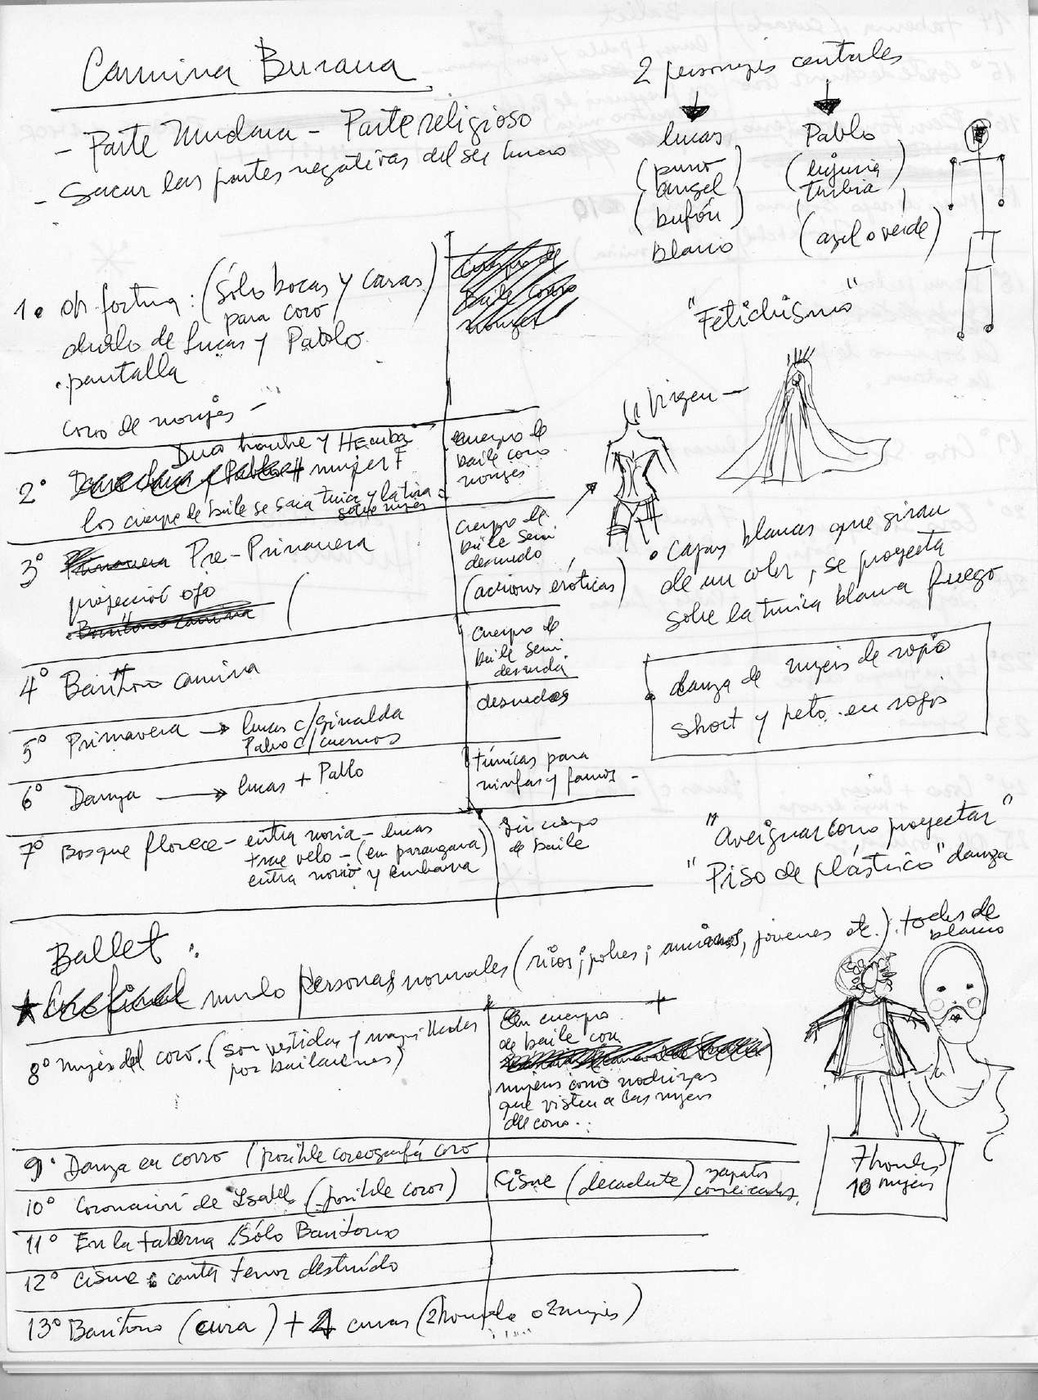 Carmina Burana
- Parte Mundana - Parte religioso
- Sacar las partes negativas del ser humano
2 personajes centrales
Lucas
(puro
angel)
(bufón)
Blanco
Pablo
(lujuria
turbia)
(azul o verde)
"Fetichismo"
1. Oh fortuna: (sólo bocas y caras)
para coro
duelo de Lucas y Pablo
. pantalla
coro de monjes -
2º Duo hombre y Hembra
mujer F
los cuerpo de baile se saca tunica y la tira
cuerpo de
baile como
monjes
Virgen -
3º Pre-Primavera
projección ojo
cuerpo de
baile semi
desnudo
(actions eróticas)
• Capas blancas que giran
de un color, se proyecta
sobre la tunica blanca fuego
4º Barítono camina
cuerpo de
baile semi
desnuda
danza de mujeres de rojo
short y peto en rojo
5º Primavera → Lucas c/guinalda
Pablo c/cuernos
desnudos
6º Danza → Lucas + Pablo
túnicas para
ninfas y faunos -
7º Bosque florece - entra novia - Lucas
trae velo - (en
entra novio y embaraza
Sin cuerpo
de baile
"Averiguar como proyectar"
"Piso de plástico" danza
Ballet:
★ mundo personas normales (ricos; pobres; ancianos, jóvenes etc.): todos de
blanco
8º mujeres del coro. (son vestidas y maquilladas
por bailarines)
Con cuerpo
de baile con
mujeres como nodrizas
que visten a las mujeres
de coro..
9º Danza en corro (posible coreografía coro
10º Coronación de Isabel (posible coros)
Cisne (decadente) zapatos
complicados
7 hombres
10 mujeres
11º En la taberna. Sólo Barítono
12º Cisne: canta tenor destruído
13º Barítono (cura) + 4 curas (2 hombres o 2 mujeres)